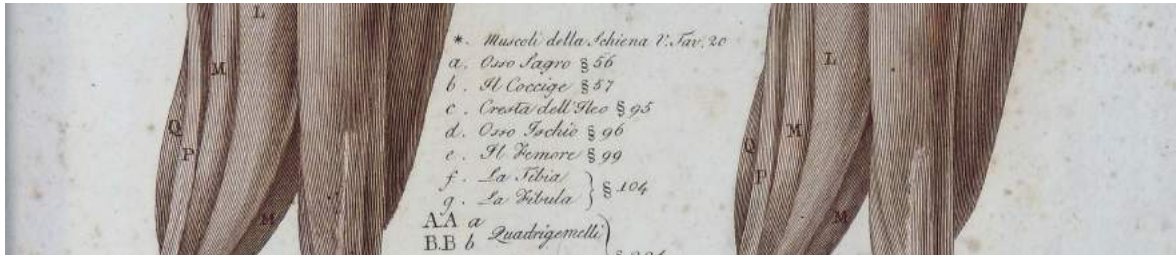 L
M
Q
P
M
*. Muscoli della Schiena V. Tav. 20
a. Osso Sagro § 56
b. Il Coccige § 57
c. Cresta dell'Ileo § 95
d. Osso Ischio § 96
e. Il Femore § 99
f. La Tibia
g. La Fibula } § 104
A.A a
B.B b Quadrigemelli
L
M
Q
P
M